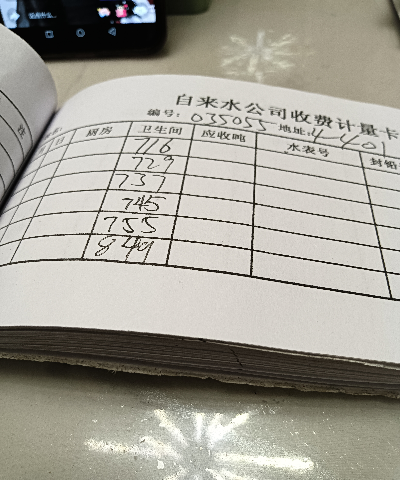 自来水公司收费计量卡
编号: 035055 地址: 4-401
日 厨房 卫生间 应收吨 水表号 封铅
716
729
737
745
755
849